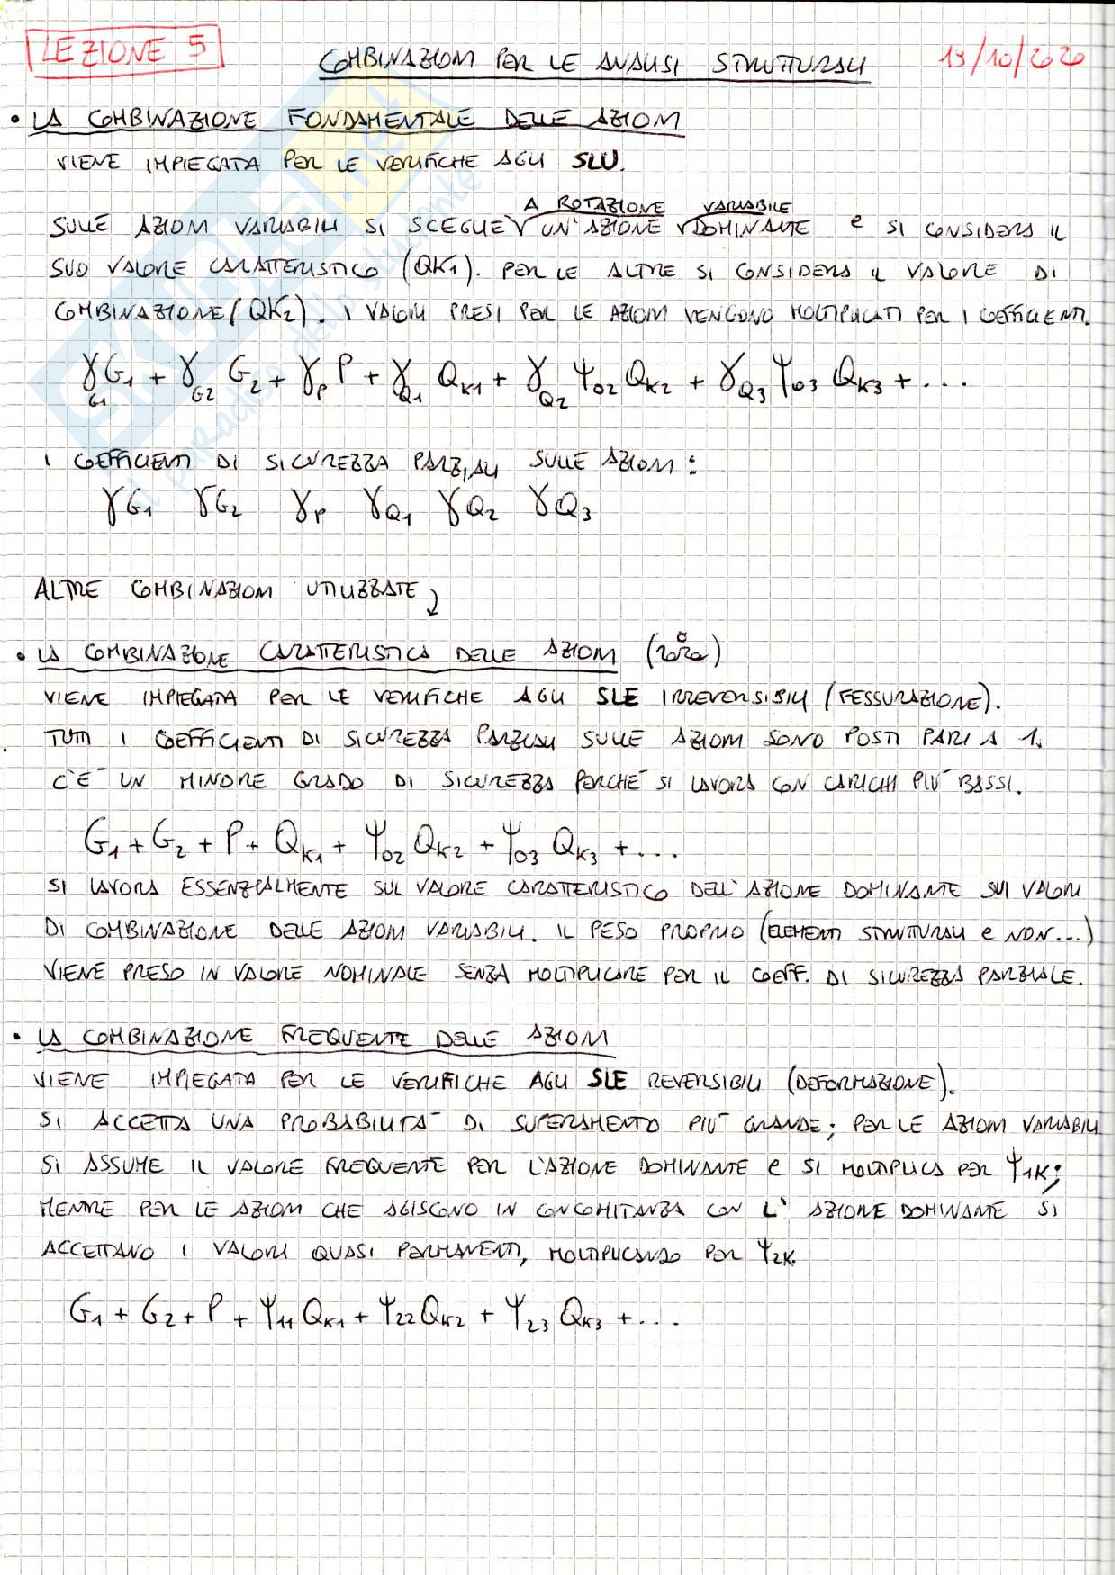 LEZIONE 5
COMBINAZIONI PER LE ANALISI STRUTTURALI
19/10/2020
• LA COMBINAZIONE FONDAMENTALE DELLE AZIONI
VIENE IMPIEGATA PER LE VERIFICHE AGLI SLU.
A ROTAZIONE VARIABILE
SULLE AZIONI VARIABILI SI SCEGLIE UN'AZIONE DOMINANTE E SI CONSIDERA IL
SUO VALORE CARATTERISTICO (QK1). PER LE ALTRE SI CONSIDERA IL VALORE DI
COMBINAZIONE (QK2). I VALORI PRESI PER LE AZIONI VENGONO MOLTIPLICATI PER I COEFFICIENTI.
γG1 G1 + γG2 G2 + γP P + γQ1 QK1 + γQ2 ψ02 QK2 + γQ3 ψ03 QK3 + ...
I COEFFICIENTI DI SICUREZZA PARZIALI SULLE AZIONI:
γG1 γG2 γP γQ1 γQ2 γQ3
ALTRE COMBINAZIONI UTILIZZATE
• LA COMBINAZIONE CARATTERISTICA DELLE AZIONI (rara)
VIENE IMPIEGATA PER LE VERIFICHE AGLI SLE IRREVERSIBILI (FESSURAZIONE).
TUTTI I COEFFICIENTI DI SICUREZZA PARZIALI SULLE AZIONI SONO POSTI PARI A 1.
C'È UN MINORE GRADO DI SICUREZZA PERCHÉ SI LAVORA CON CARICHI PIÙ BASSI.
G1 + G2 + P + QK1 + ψ02 QK2 + ψ03 QK3 + ...
SI LAVORA ESSENZIALMENTE SUL VALORE CARATTERISTICO DELL'AZIONE DOMINANTE SUI VALORI
DI COMBINAZIONE DELLE AZIONI VARIABILI. IL PESO PROPRIO (ELEMENTI STRUTTURALI E NON...)
VIENE PRESO IN VALORE NOMINALE SENZA MOLTIPLICARE PER IL COEFF. DI SICUREZZA PARZIALE.
• LA COMBINAZIONE FREQUENTE DELLE AZIONI
VIENE IMPIEGATA PER LE VERIFICHE AGLI SLE REVERSIBILI (DEFORMAZIONE).
SI ACCETTA UNA PROBABILITÀ DI SUPERAMENTO PIÙ GRANDE; PER LE AZIONI VARIABILI
SI ASSUME IL VALORE FREQUENTE PER L'AZIONE DOMINANTE E SI MOLTIPLICA PER ψ1K;
MENTRE PER LE AZIONI CHE AGISCONO IN CONCOMITANZA CON L'AZIONE DOMINANTE SI
ACCETTANO I VALORI QUASI PERMANENTI, MOLTIPLICANDO PER ψ2K.
G1 + G2 + P + ψ11 QK1 + ψ22 QK2 + ψ23 QK3 + ...